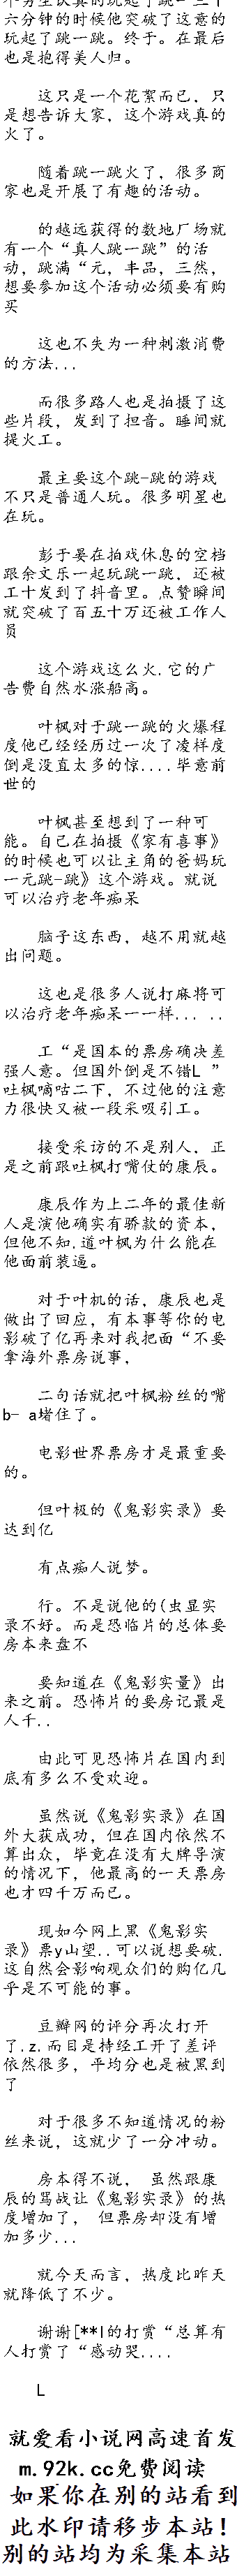 六分钟的时候他突破了这意的
玩起了跳一跳。终于。在最后
也是抱得美人归。
这只是一个花絮而已，只
是想告诉大家，这个游戏真的
火了。
随着跳一跳火了，很多商
家也是开展了有趣的活动。
的越远获得的数地厂场就
有一个“真人跳一跳”的活
动，跳满“元，丰品，三然，
想要参加这个活动必须要有购
买
这也不失为一种刺激消费
的方法...
而很多路人也是拍摄了这
些片段，发到了担音。睡间就
提火工。
最主要这个跳-跳的游戏
不只是普通人玩。很多明星也
在玩。
彭于晏在拍戏休息的空档
跟余文乐一起玩跳一跳，还被
工十发到了抖音里。点赞瞬间
就突破了百五十万还被工作人
员
这个游戏这么火.它的广
告费自然水涨船高。
叶枫对于跳一跳的火爆程
度他已经经历过一次了凌样度
倒是没直太多的惊....毕意前
世的
叶枫甚至想到了一种可
能。自己在拍摄《家有喜事》
的时候也可以让主角的爸妈玩
一元跳-跳》这个游戏。就说
可以治疗老年痴呆
脑子这东西，越不用就越
出问题。
这也是很多人说打麻将可
以治疗老年痴呆一一样... ..
工“是国本的票房确决差
强人意。但国外倒是不错L ”
吐枫嘀咕二下，不过他的注意
力很快又被一段采吸引工。
接受采访的不是别人，正
是之前跟吐枫打嘴仗的康辰。
康辰作为上二年的最佳新
人是演他确实有骄款的资本，
但他不知.道叶枫为什么能在
他面前装逼。
对于叶机的话，康辰也是
做出了回应，有本事等你的电
影破了亿再来对我把面“不要
拿海外票房说事，
二句话就把叶枫粉丝的嘴
b- a堵住了。
电影世界票房才是最重要
的。
但叶极的《鬼影实录》要
达到亿
有点痴人说梦。
行。不是说他的(虫显实
录不好。而是恐临片的总体要
房本来盘不
要知道在《鬼影实量》出
来之前。恐怖片的要房记最是
人千..
由此可见恐怖片在国内到
底有多么不受欢迎。
虽然说《鬼影实录》在国
外大获成功，但在国内依然不
算出众，毕竟在没有大牌导演
的情况下，他最高的一天票房
也才四千万而已。
现如今网上黑《鬼影实
录》票y山望..可以说想要破.
这自然会影响观众们的购亿几
乎是不可能的事。
豆瓣网的评分再次打开
了.z.而目是持经工开了差评
依然很多，平均分也是被黑到
了
对于很多不知道情况的粉
丝来说，这就少了一分冲动。
房本得不说， 虽然跟康
辰的骂战让《鬼影实录》的热
度增加了， 但票房却没有增
加多少...
就今天而言，热度比昨天
就降低了不少。
谢谢[**l的打赏“总算有
人打赏了“感动哭....
L
就爱看小说网高速首发
m.92k.cc免费阅读
如果你在别的站看到
此水印请移步本站！
别的站均为采集本站